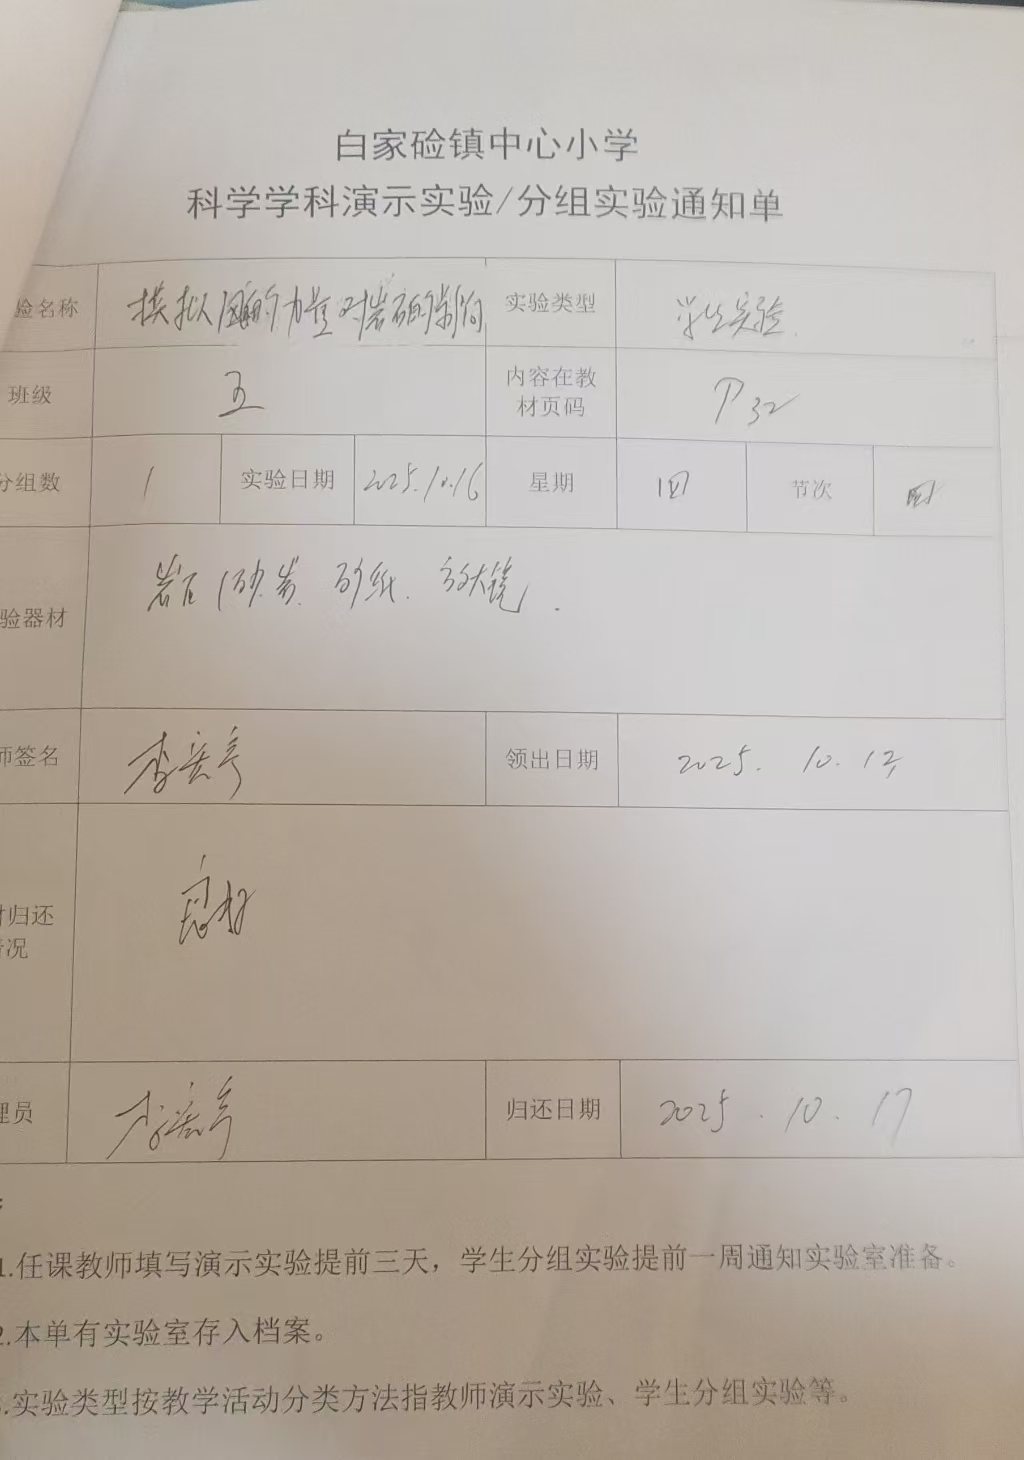 白家硷镇中心小学
科学学科演示实验/分组实验通知单
验名称 模拟风的力量对岩石的影响 实验类型 学生实验
班级 五 内容在教材页码 P32
分组数 1 实验日期 2025.10.16 星期 四 节次 四
验器材 岩石(砂岩、砂纸、放大镜.
师签名 领出日期 2025. 10.
材归还情况 良好
理员 归还日期 2025.10.17
1.任课教师填写演示实验提前三天，学生分组实验提前一周通知实验室准备。
2.本单有实验室存入档案。
.实验类型按教学活动分类方法指教师演示实验、学生分组实验等。